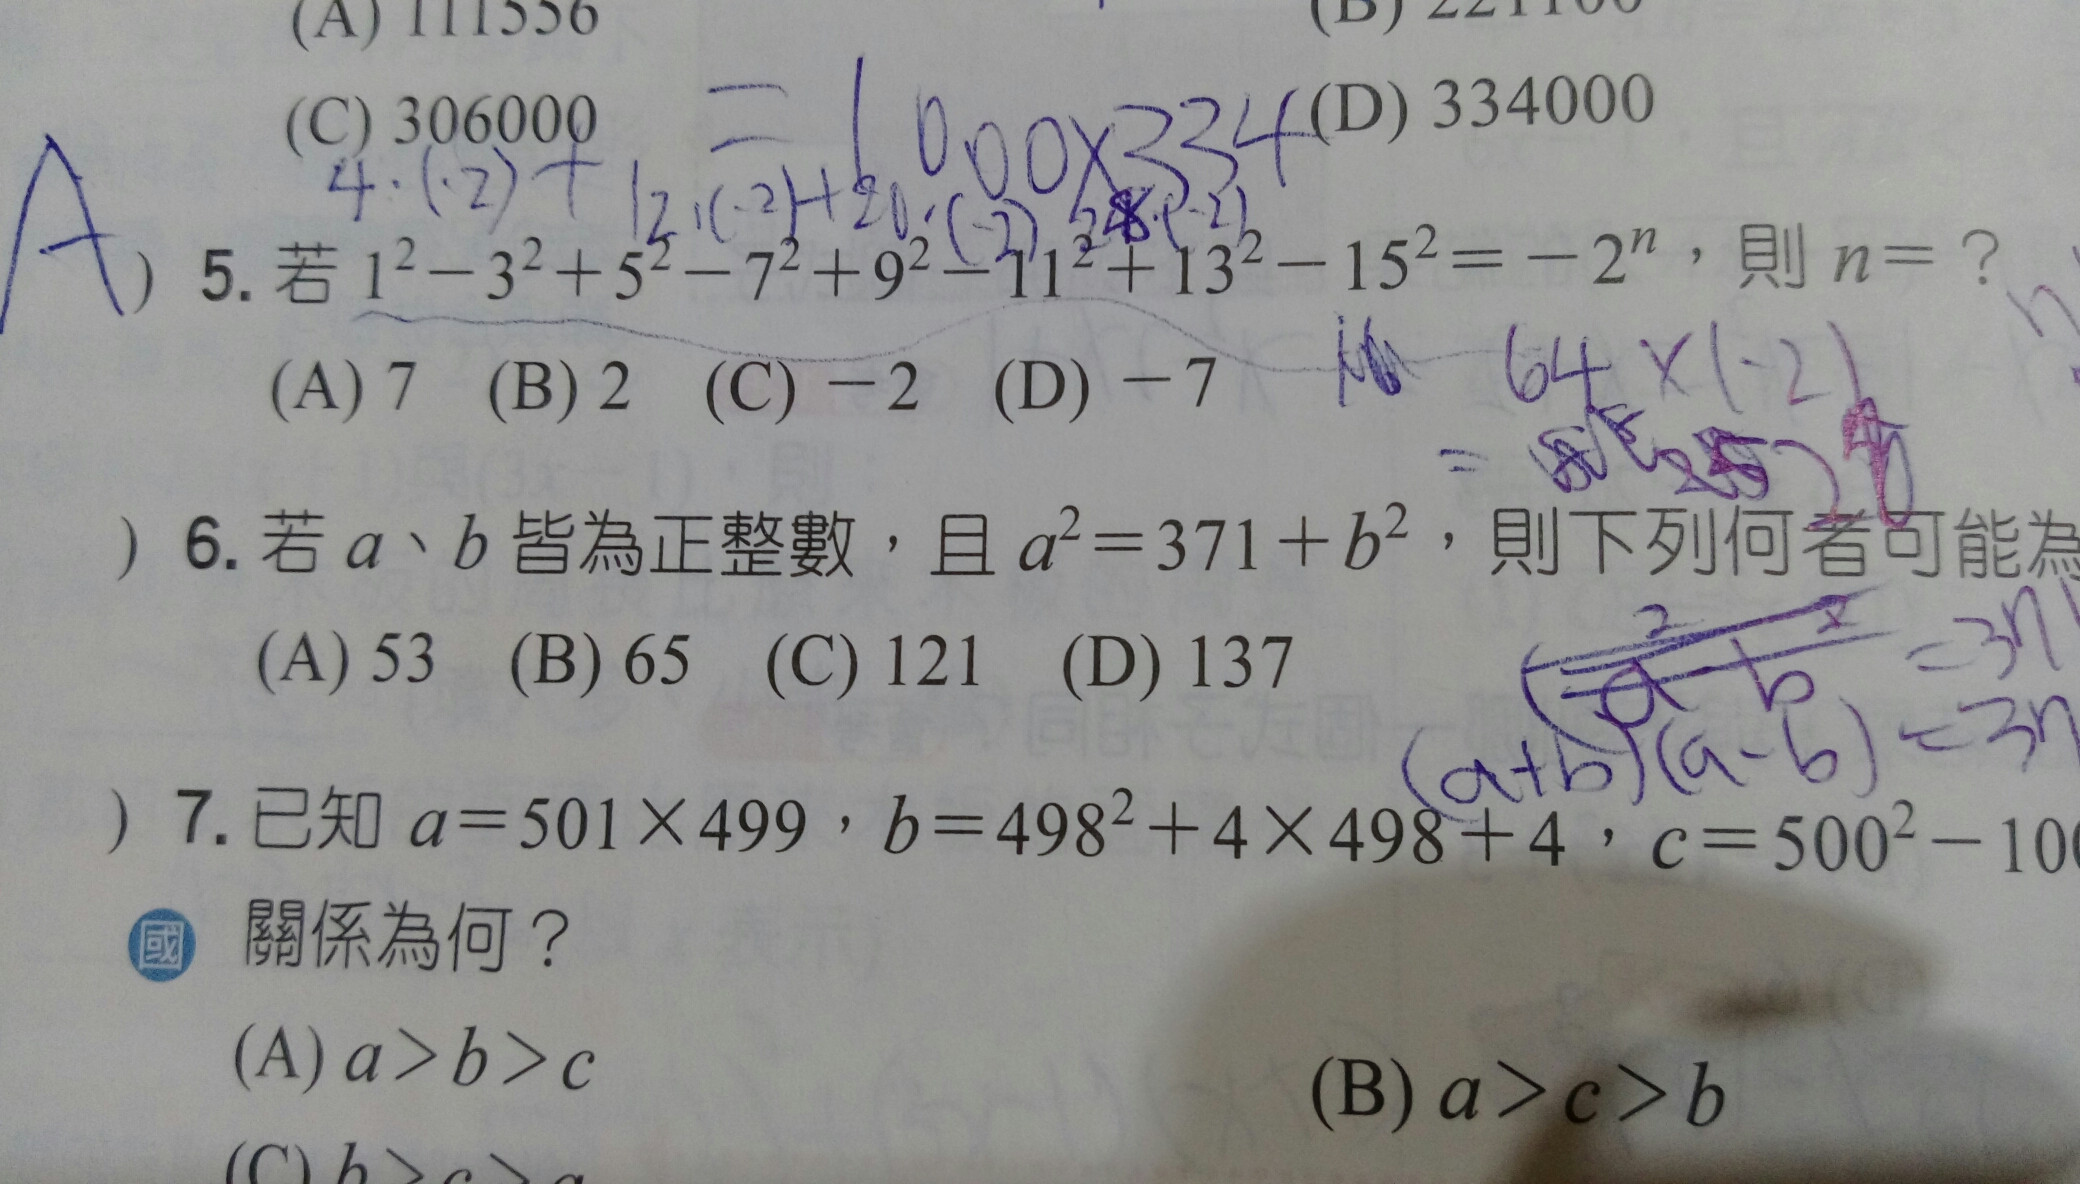 (A) 111556
(C) 306000
(D) 334000
= 1000×334
4·(-2)+12·(-2)+20·(-2) 28·(-2)
A
) 5. 若 1²−3²+5²−7²+9²−11²+13²−15²=−2ⁿ，則 n=？
(A) 7 (B) 2 (C) −2 (D) −7
64×(-2)
=
) 6. 若 a、b 皆為正整數，且 a²=371+b²，則下列何者可能為
(A) 53 (B) 65 (C) 121 (D) 137
(a+b)(a-b)=37
) 7. 已知 a=501×499，b=498²+4×498+4，c=500²−10
國 關係為何？
(A) a>b>c
(B) a>c>b
(C) b>c>a